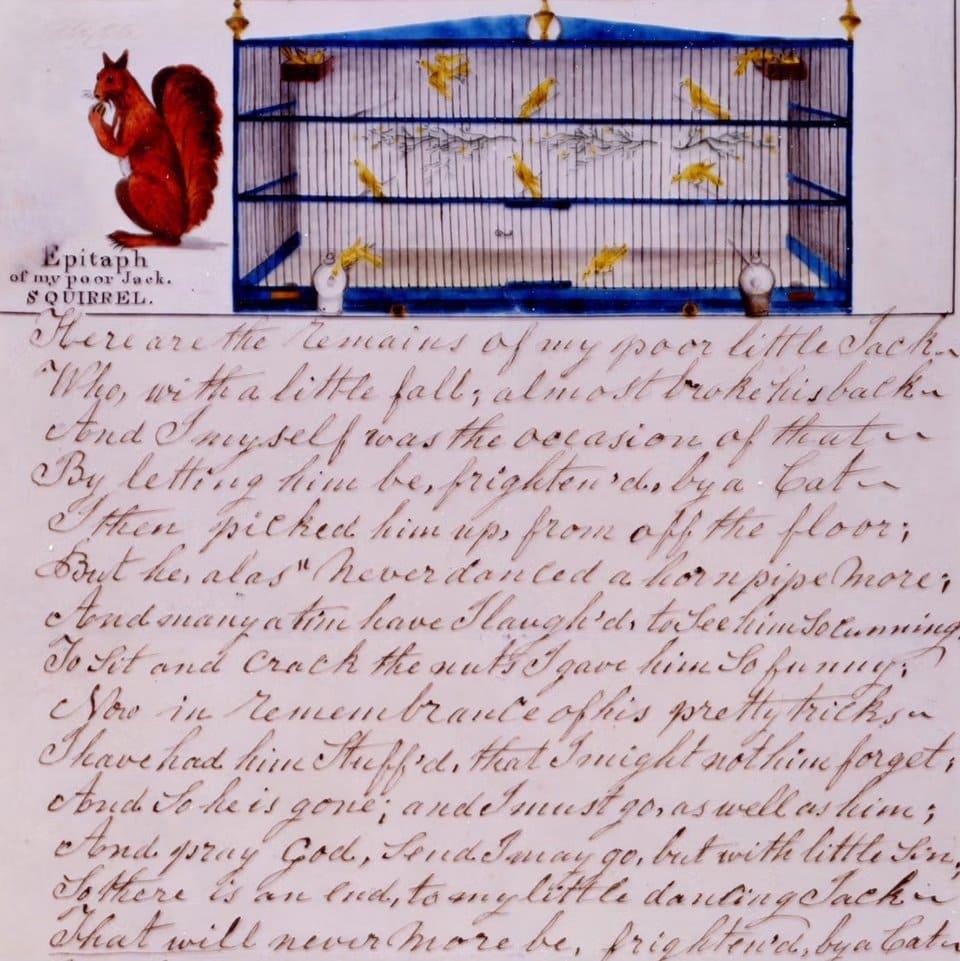 Epitaph
of my poor Jack.
SQUIRREL.
Here are the remains of my poor little Jack~
Who, with a little fall; almost broke his back~
And I myself was the occasion of that~
By letting him be, frighten'd, by a Cat~
I then picked him up, from off the floor;
But he, alas" Never danced a hornpipe More;
And many a tim have I laugh'd, to See him So cunning
To Sit and Crack the nuts I gave him So funny;
Now in remembrance of his pretty tricks~
I have had him Stuff'd, that I might not him forget;
And So he is gone; and I must go, as well as him;
And pray God, Send I may go, but with little Sin,
So there is an end, to my little dancing Jack~
That will never More be, frighten'd, by a Cat~